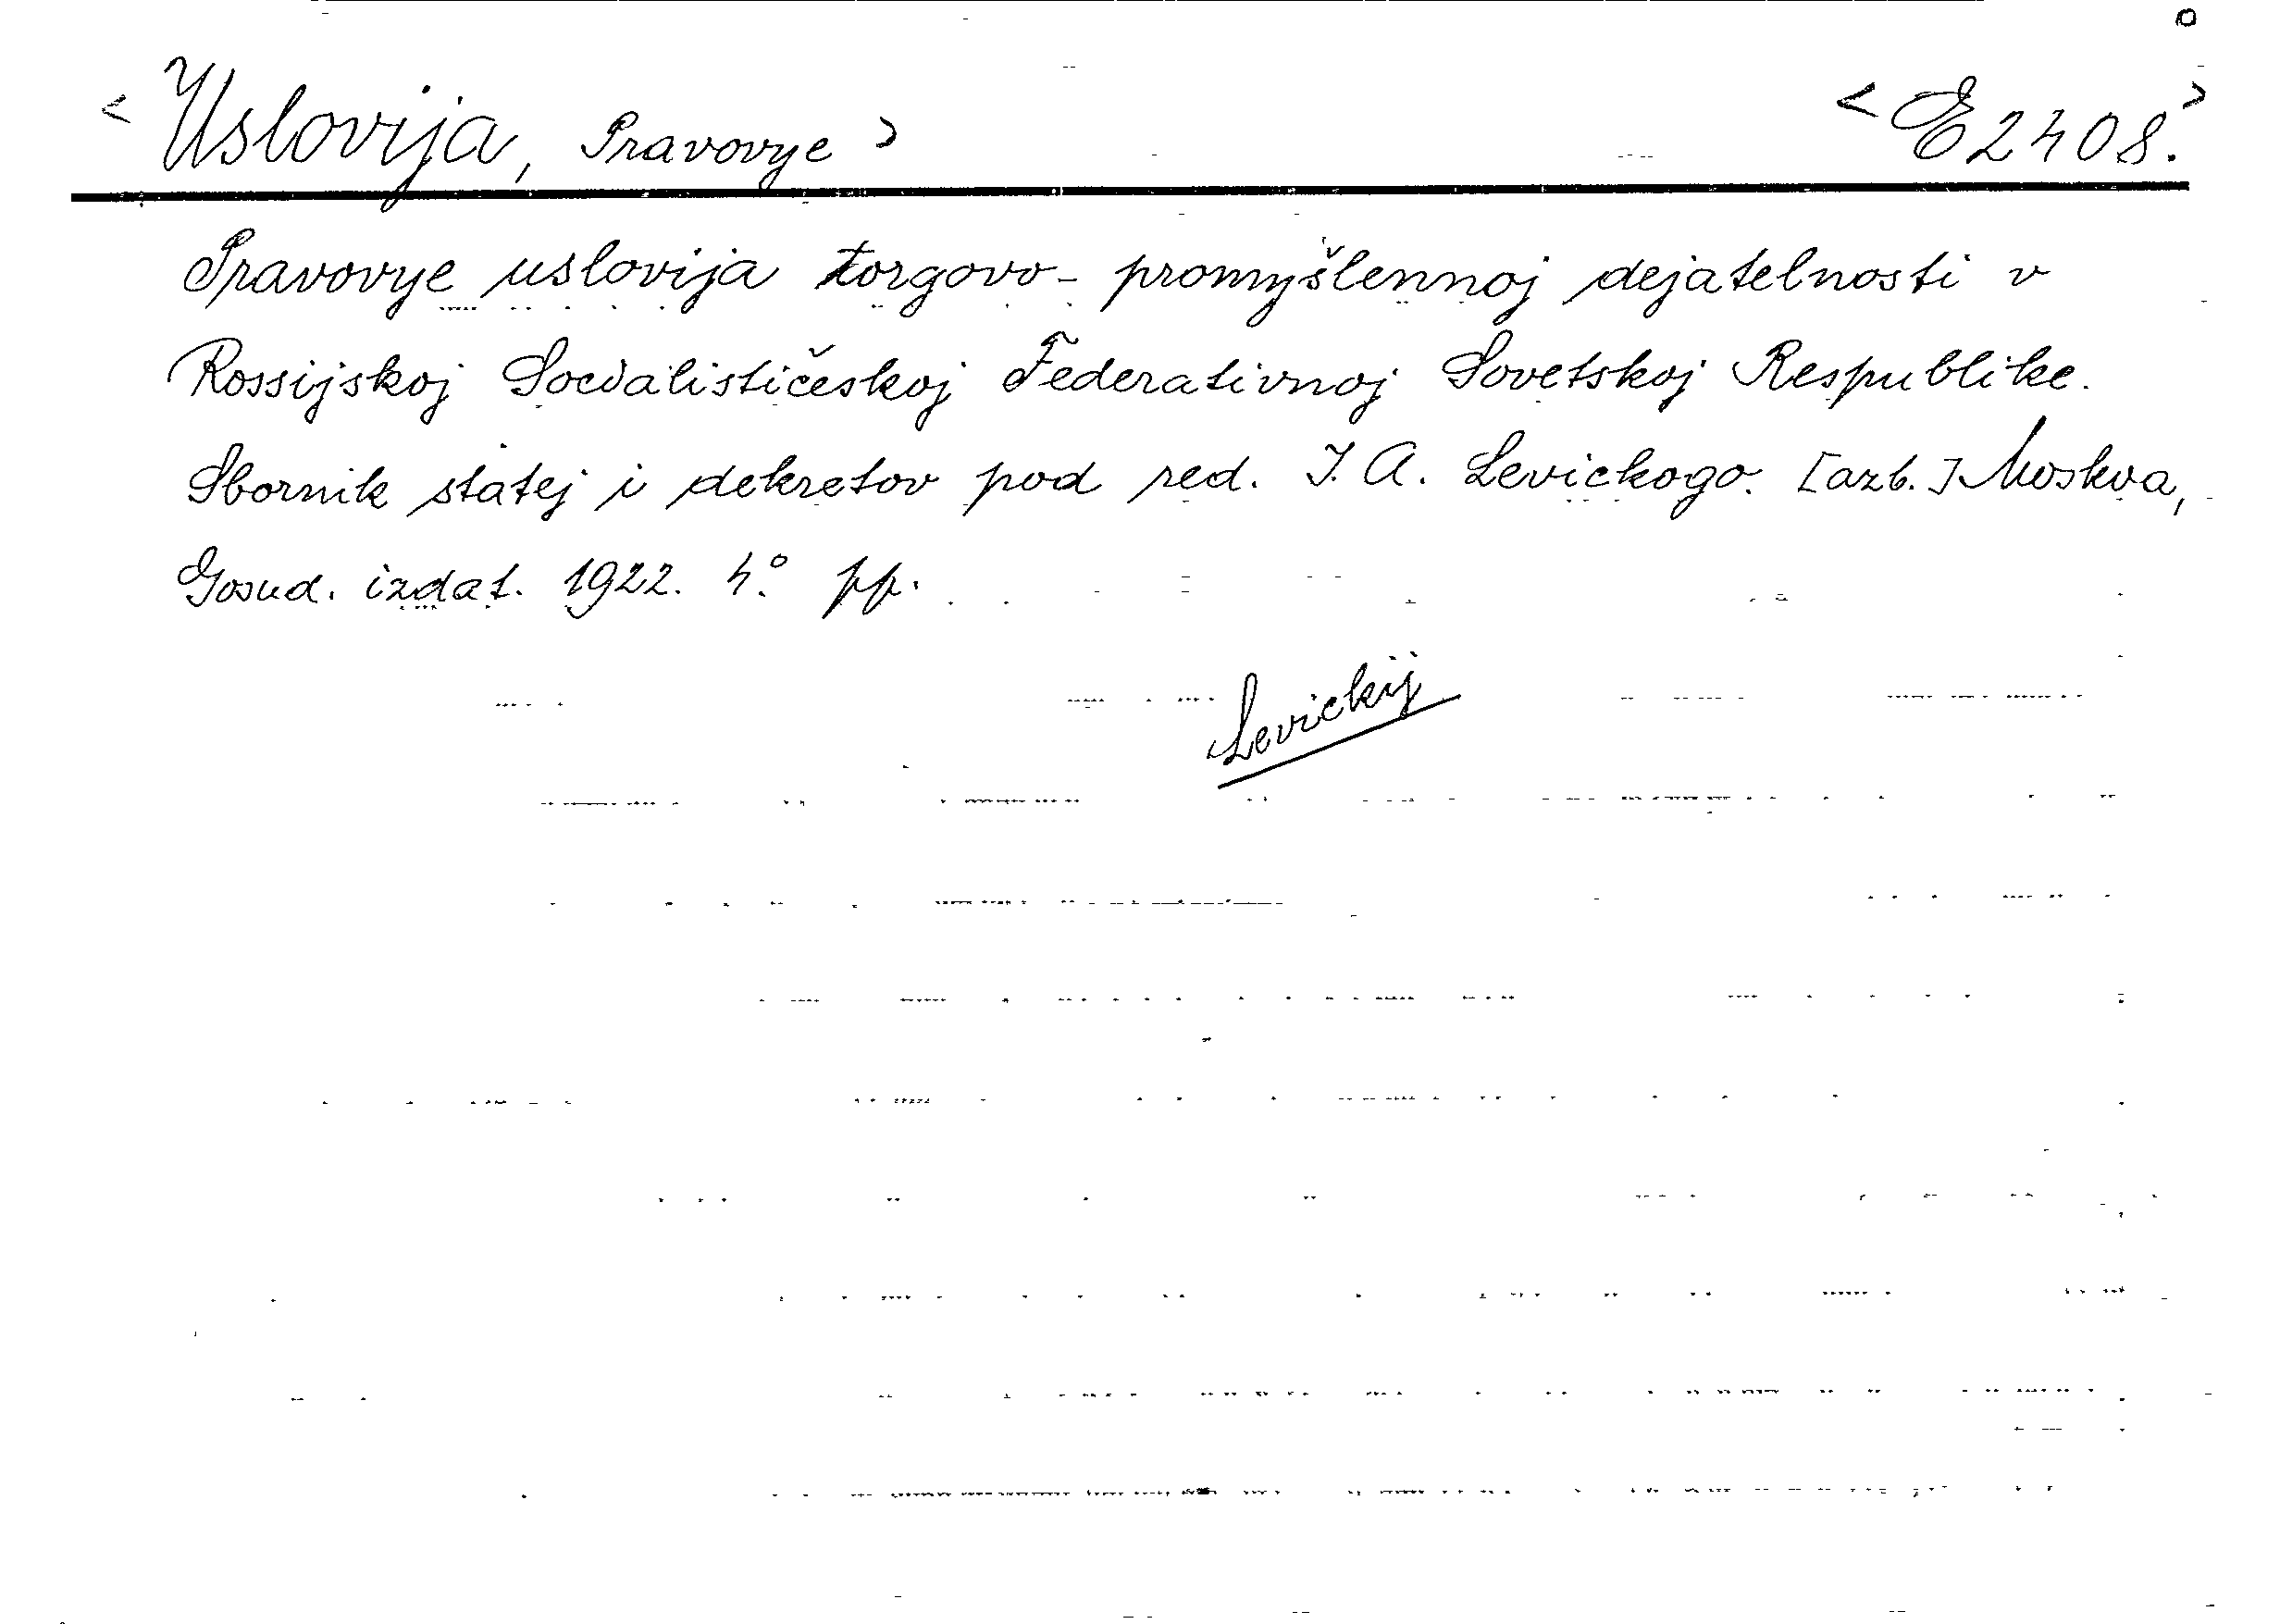 < Uslovija, Pravovye > <E 2408.>
Pravovye uslovija torgovo-promyšlennoj dejatelnosti v
Rossijskoj Socialističeskoj Federativnoj Sovetskoj Respublike.
Sbornik statej i dekretov pod red. I. A. Levickogo. [azb.] Moskva,
Gosud. izdat. 1922. 4° pp.
Levickij